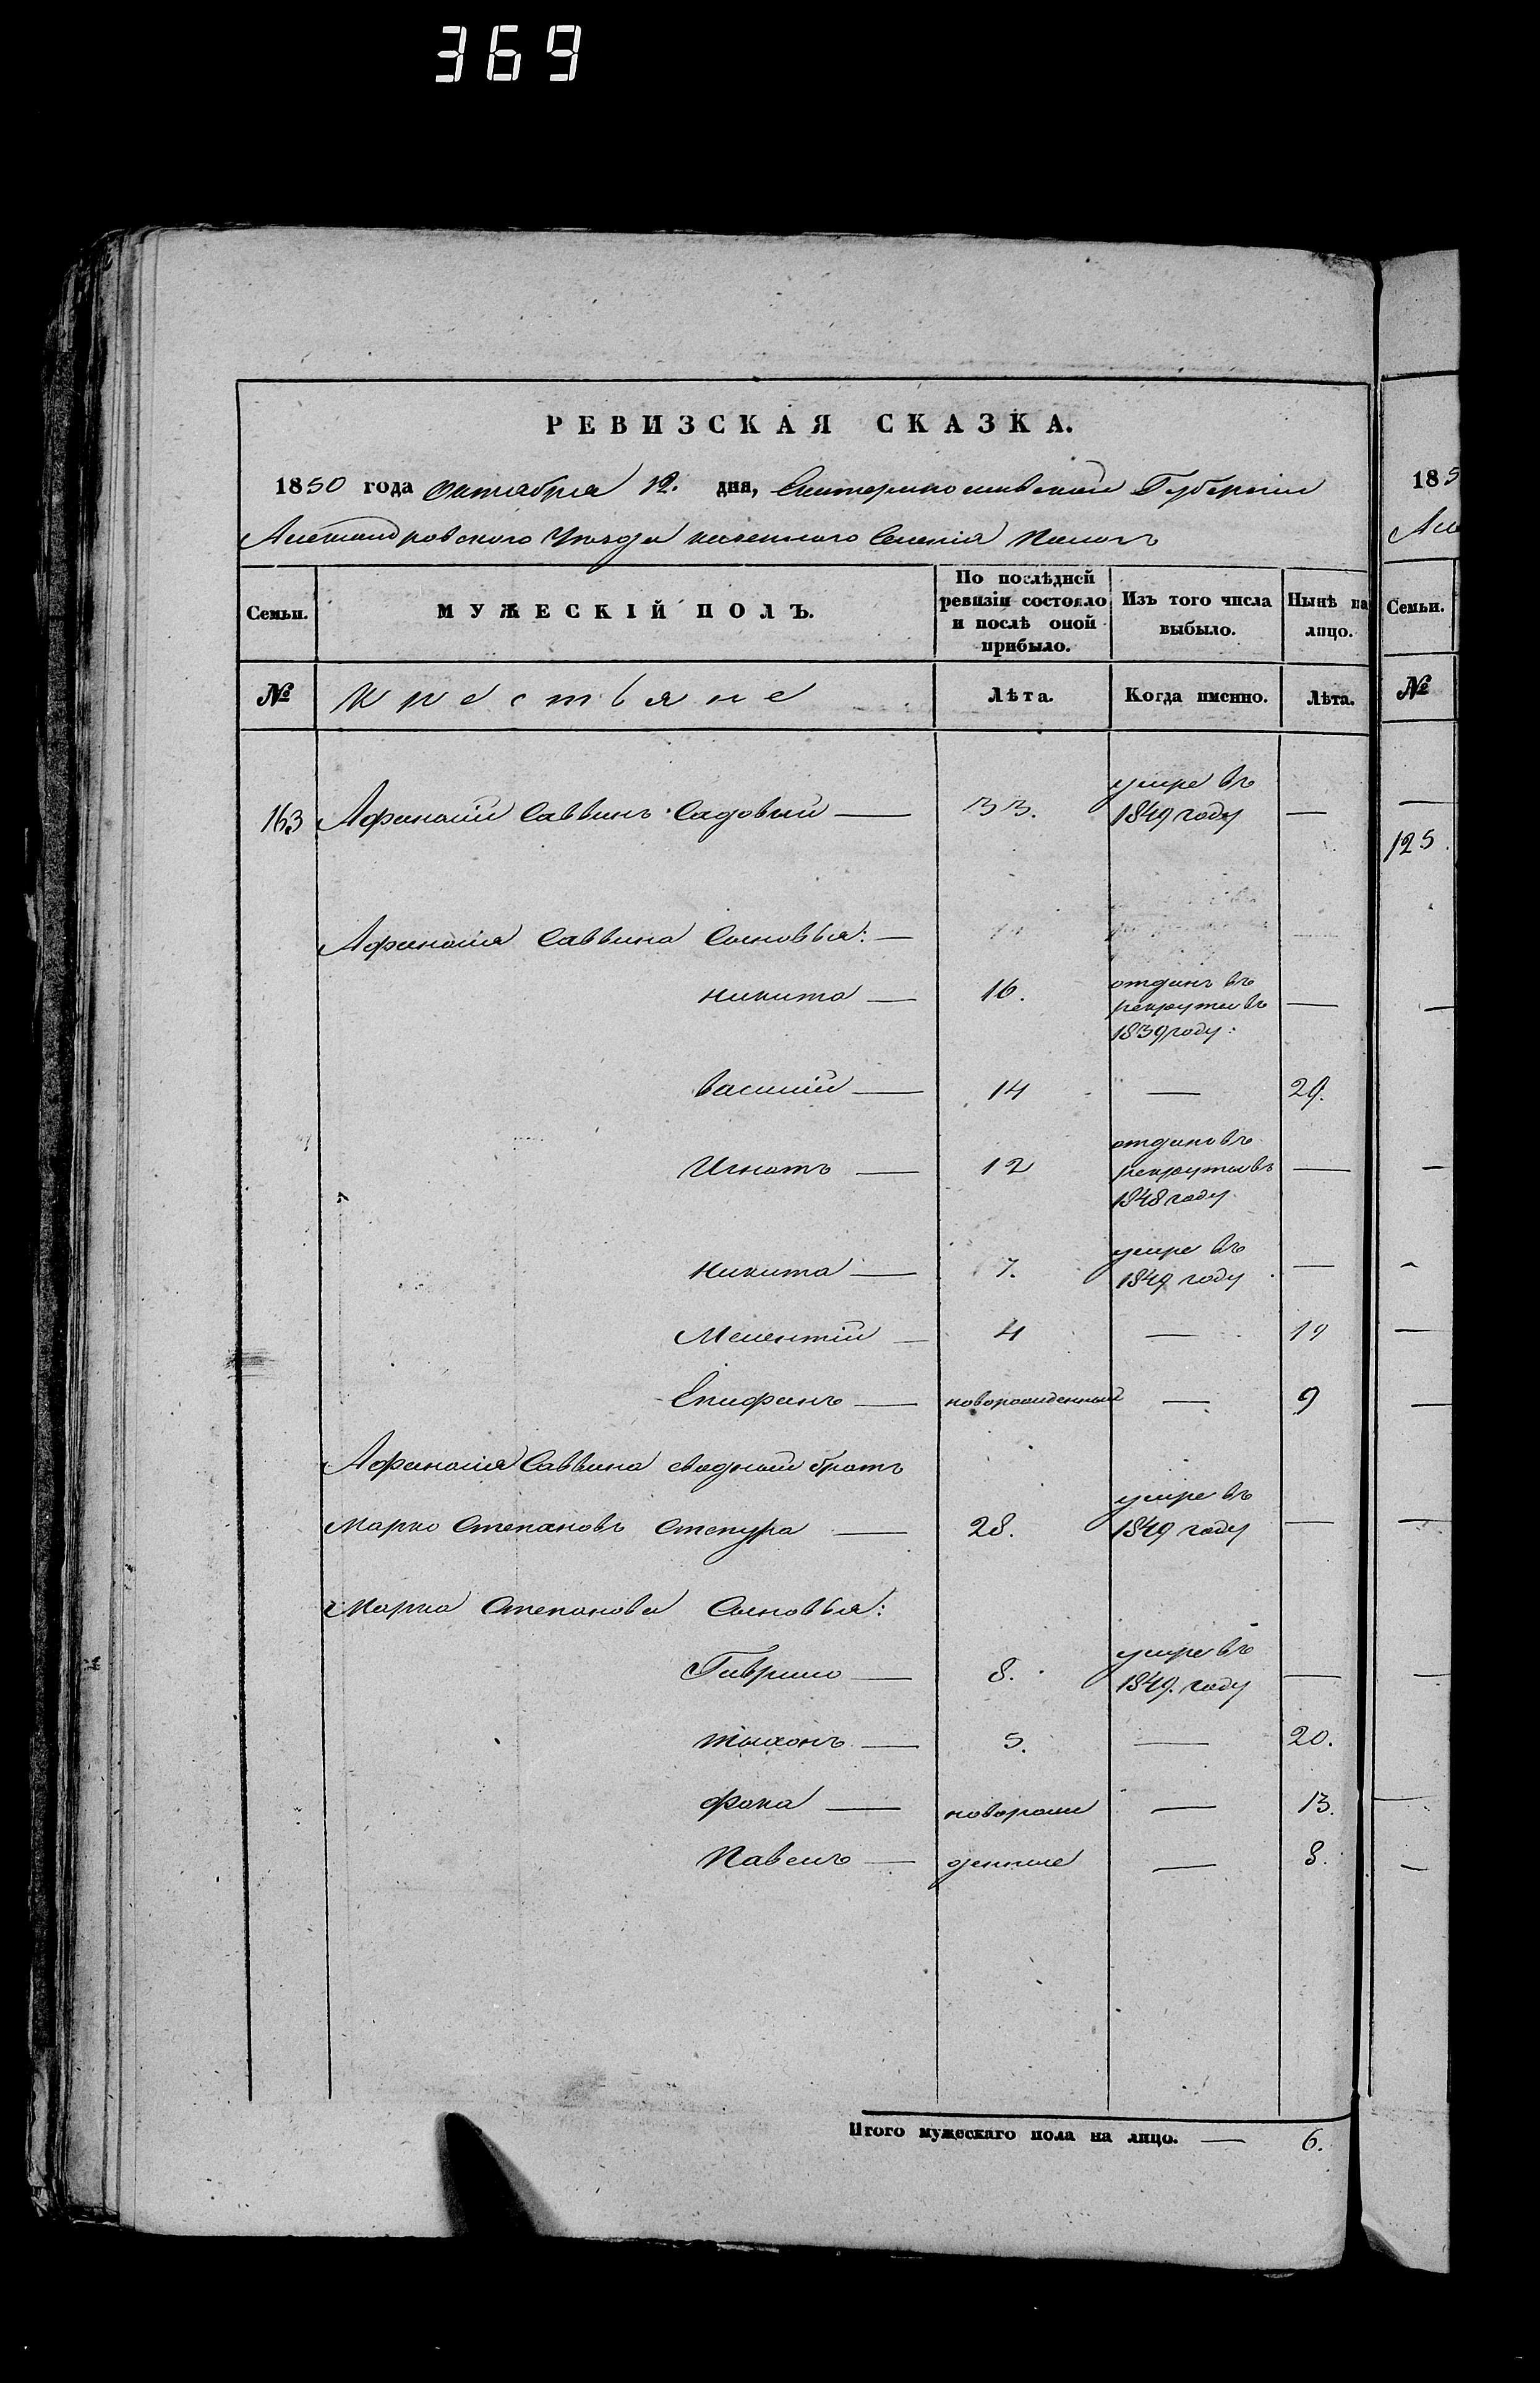 369
РЕВИЗСКАЯ СКАЗКА.
1850 года Октября 12. дня, Екатеринославской Губернии
Александровского Уезда казенного Селенія Пологъ
Семьи. МУЖЕСКІЙ ПОЛЪ. По послѣдней ревизіи состояло и послѣ оной прибыло. Изъ того числа выбыло. Нынѣ на лицо.
№ Крестьяне Лѣта. Когда именно. Лѣта.
163 Афанасій Саввинъ Садовый — 33. умре въ 1849 году —
Афанасия Саввина Сыновья: —
Никита — 16. отданъ въ рекруты въ 1839 году: —
Василій — 14 — 29.
Игнатъ — 12 отданъ въ рекруты въ 1848 году —
Никита — 7. умре въ 1849 году —
Мелентій — 4 — 19
Епифанъ — новорожденный — 9
Афанасия Саввина сводный братъ
Марко Степановъ Степура — 28. умре въ 1849 году —
Марка Степанова Сыновья:
Гаврило — 8. умре въ 1849. году —
Тыхонъ — 5. — 20.
Фока — новорож — 13.
Павелъ — денные — 8.
Итого мужескаго пола на лицо. — 6.
185
Але
Семьи.
№
125.